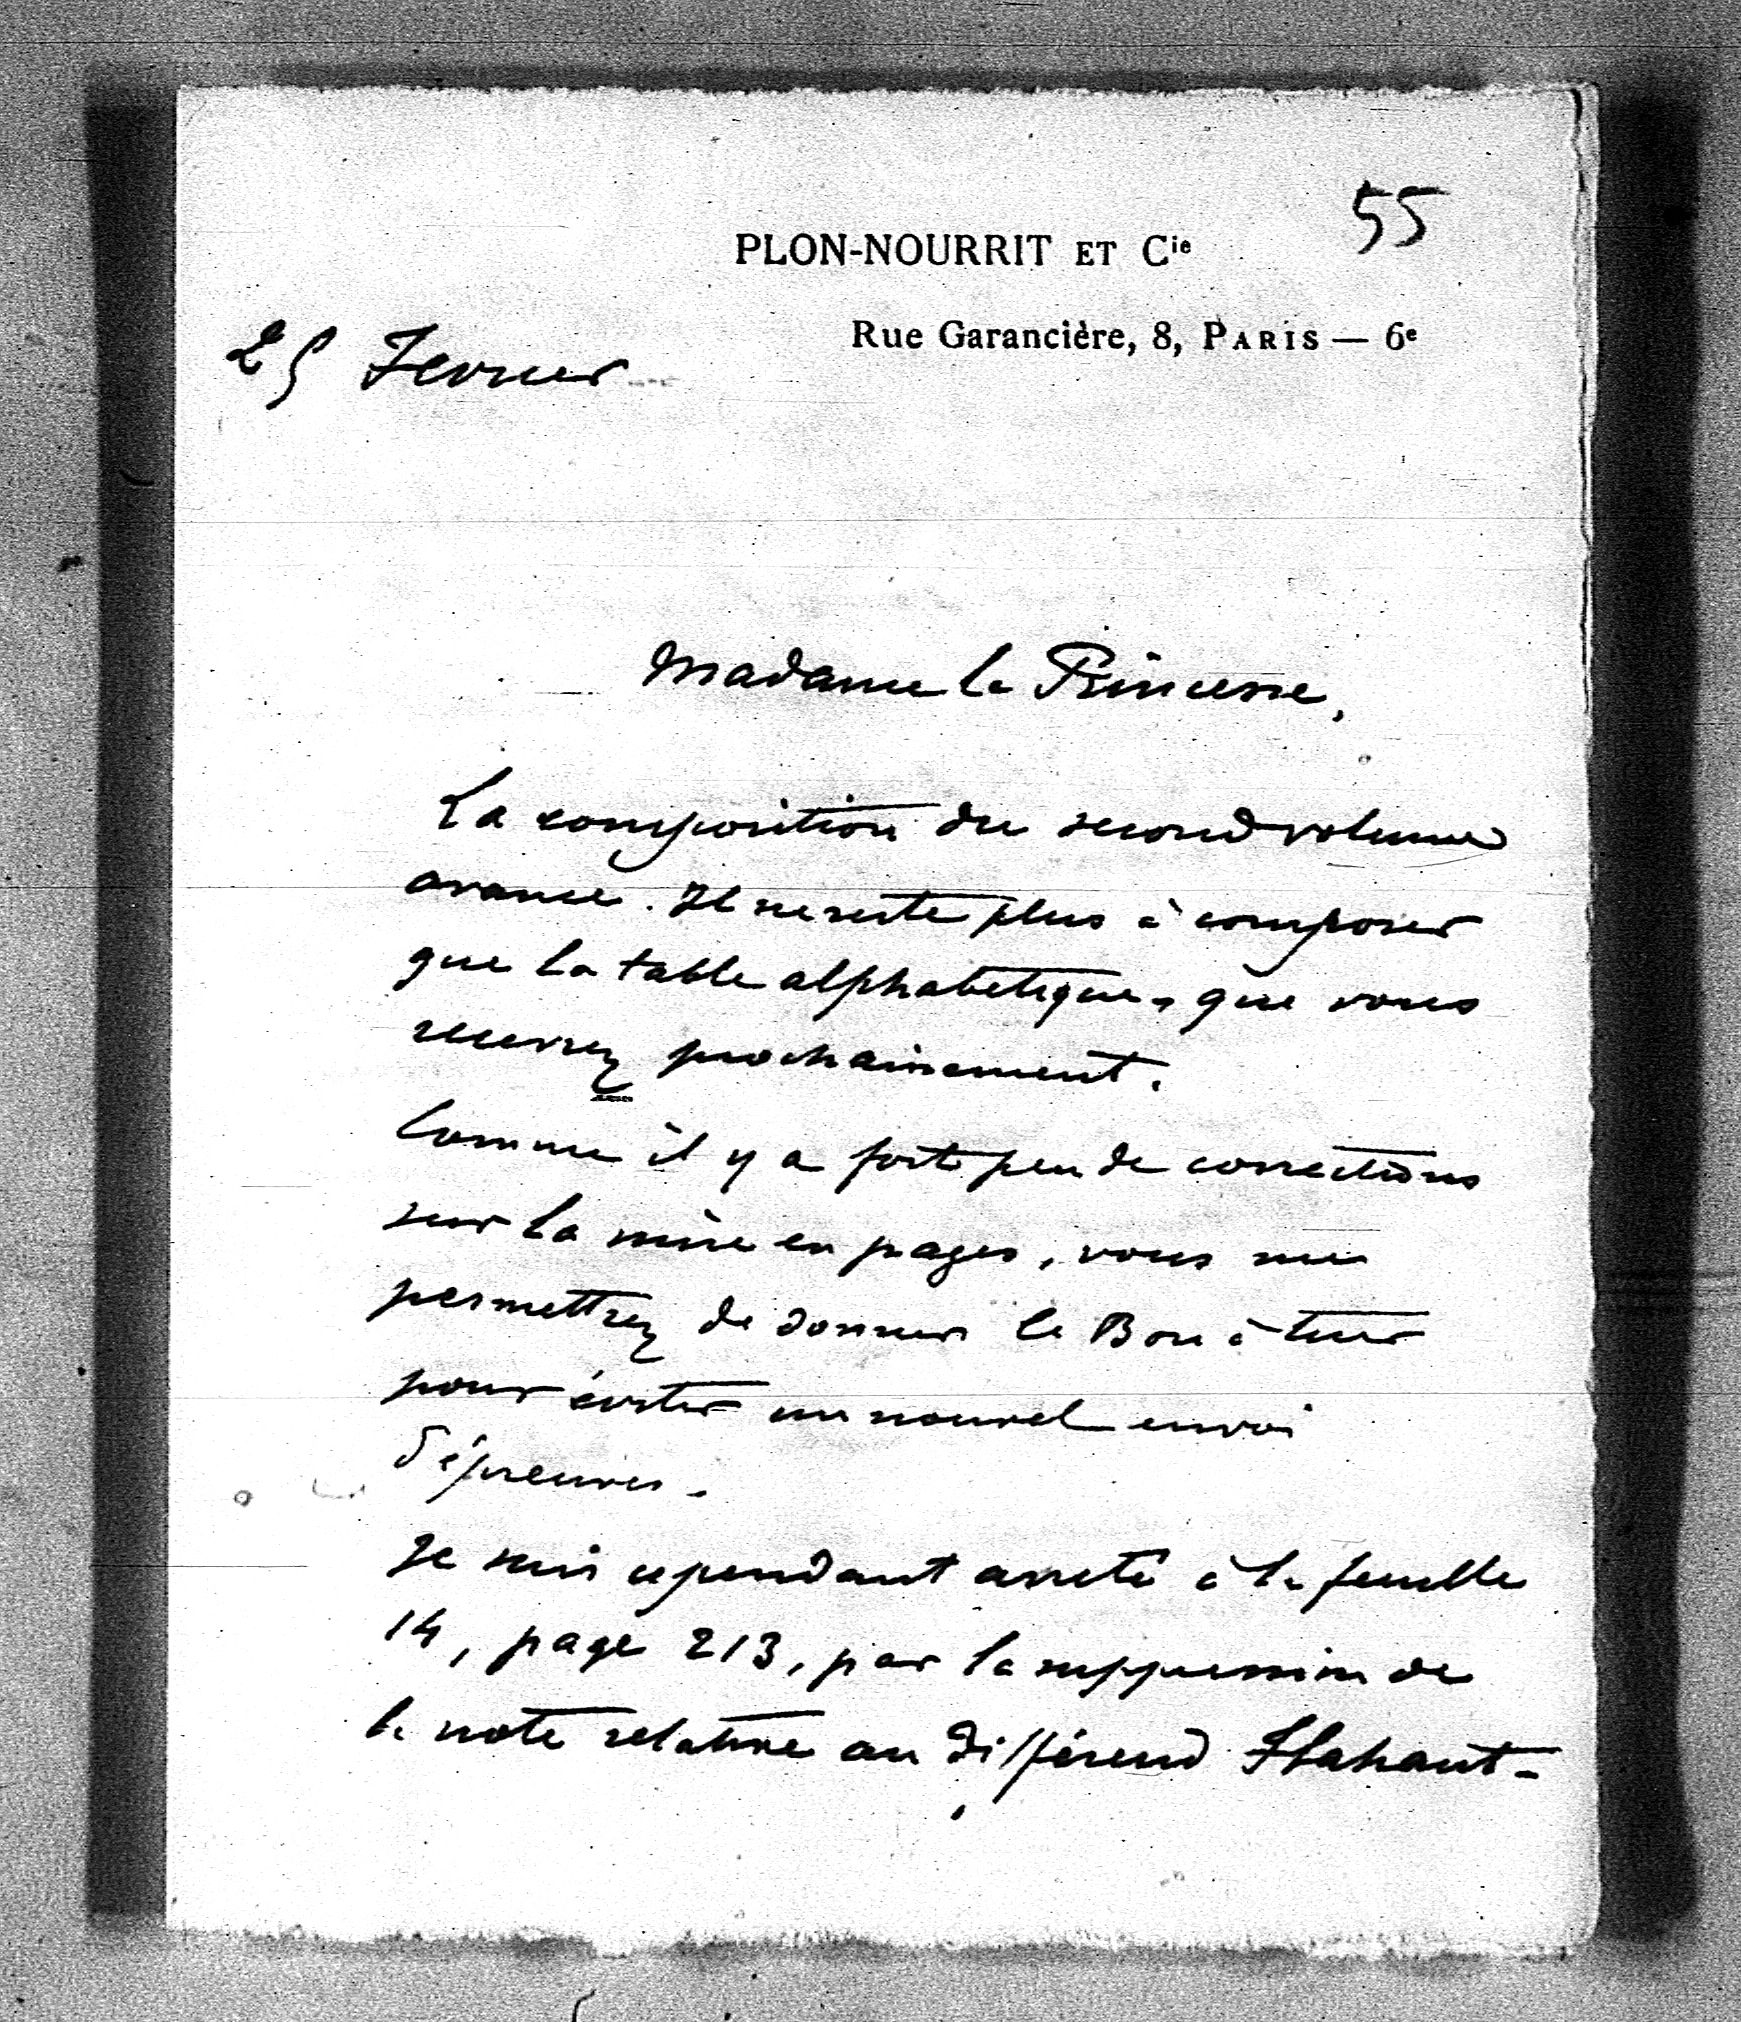 55
PLON-NOURRIT ET Cie
Rue Garancière, 8, PARIS — 6e
25 Fevrier
Madame la Princesse,
La composition du second volume
avance. Il ne reste plus à composer
que la table alphabetique, que vous
recevrez prochainement.
Comme il y a fort peu de corrections
sur la mise en pages, vous me
permettrez de donner le Bon à tirer
pour éviter un nouvel envoi
d'épreuves.
Je suis cependant arreté à la feuille
14, page 213, par la suppression de
la note relative au différend Flahaut-